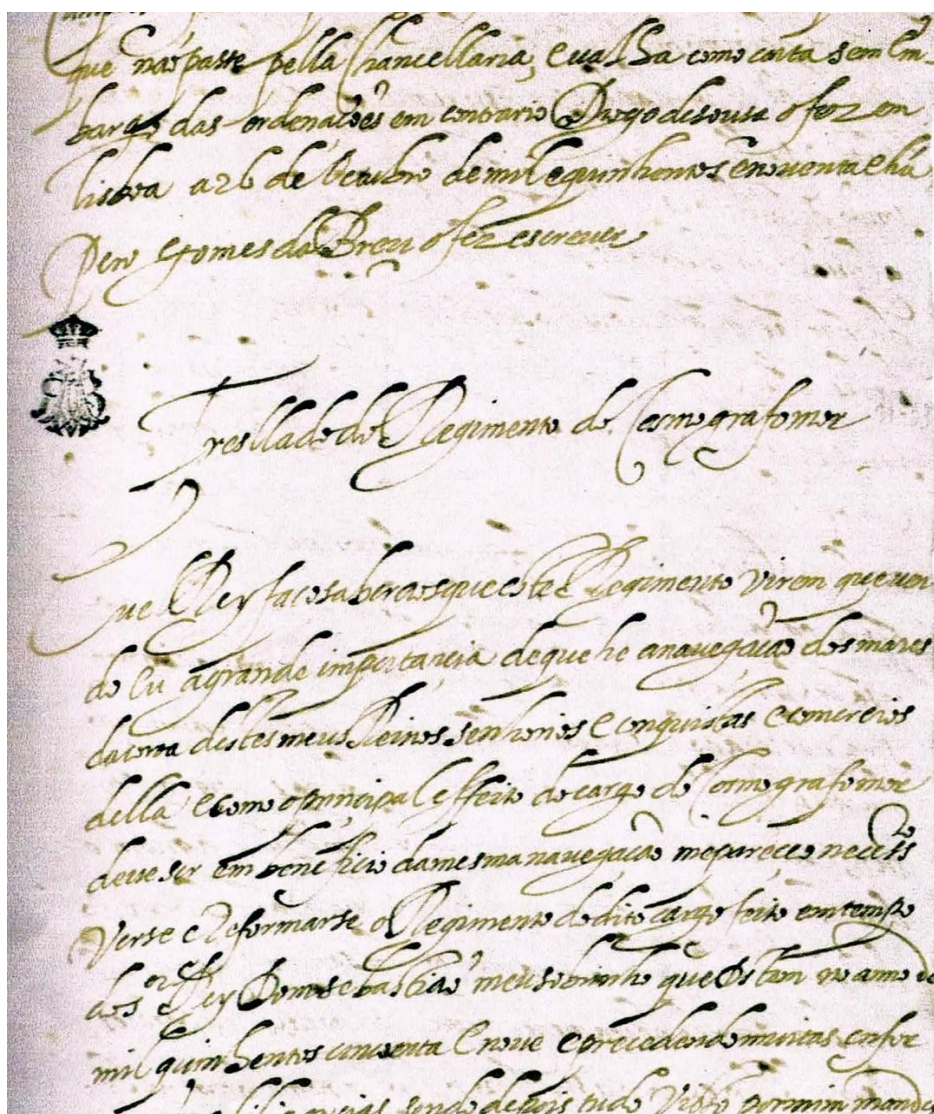 que não passe pella Chancellaria, e valha como carta sem em-
bargo das ordenações em contrario Diogo de sousa o fez em
lisboa a 26 de Octubro de mil e quinhentos e noventa e hũ
Pero Gomes da Breu o fez escrever
Tresllado do Regimento do Cosmografo mor
Eu el Rey faço saber aos que este Regimento virem que ven
do eu a grande importancia de que he a navegação dos mares
da coroa destes meus Reinos senhorios e conquistas e comercios
della e como o principal effeito do cargo de Cosmografo mor
deve ser em beneficio da mesma navegação me pareceo necessº
verse e Reformarse o Regimento do dito cargo feito em tempo
do sor Rey Dom sebastião meu sobrinho que Ds tem no anno de
mil quinhentos cincoenta e nove e precedendo muitas enfor
sendo depois tudo visto por mim mando